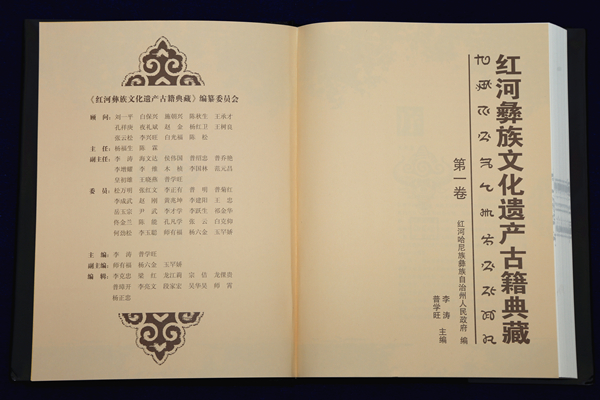 《红河彝族文化遗产古籍典藏》编纂委员会
顾 问：刘一平 白保兴 施锡兴 陈秋生 王承才
孔祥庚 夜礼斌 赵 金 杨红卫 王树良
张云松 李兴旺 白光福 陈 松
主 任：杨福生 陈 霖
副主任：李 涛 海文达 侯作国 曾绍忠 普乔艳
李增耀 李 维 本 柄 李国林 范元昌
皇初雄 王晓燕 普学旺
委 员：松万明 张红文 李正有 普 明 普菊红
李成武 赵 刚 黄兆坤 李建阳 王 忠
岳玉宗 尹 武 李才学 李跃生 祁金华
佟金兰 陈 能 孔凡学 张 云 白克仰
何劲松 李玉聪 师有福 杨六金 玉罕娇
主 编：李 涛 普学旺
副主编：师有福 杨六金 玉罕娇
编 辑：李克忠 梁 红 龙江莉 宗 信 龙倮贵
普璋开 李亮文 段家宏 吴华昊 师 霄
杨正忠
红河彝族文化遗产古籍典藏
第一卷
红河哈尼族彝族自治州人民政府 编
李 涛
普学旺
主编